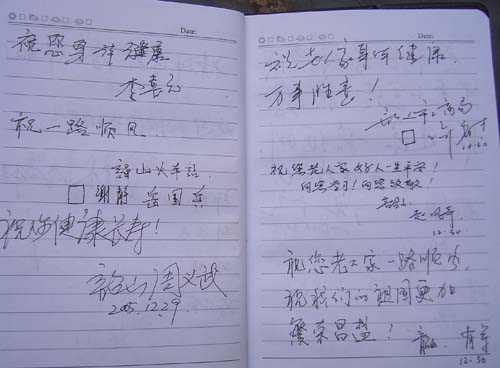 Date:
祝您身体健康
李喜云
祝一路顺风
韶山火车站
谢静 岳国兵
祝你健康长寿!
韶山周义武
2005.12.29
Date:
祝老人家身体健康
万事胜意!
韶山市工商局
12.30
祝您老人家好人一生平安!
向您学习!向您致敬!
12.30
祝您老人家一路顺风,
祝我们的祖国更加
繁荣昌盛!
12.30